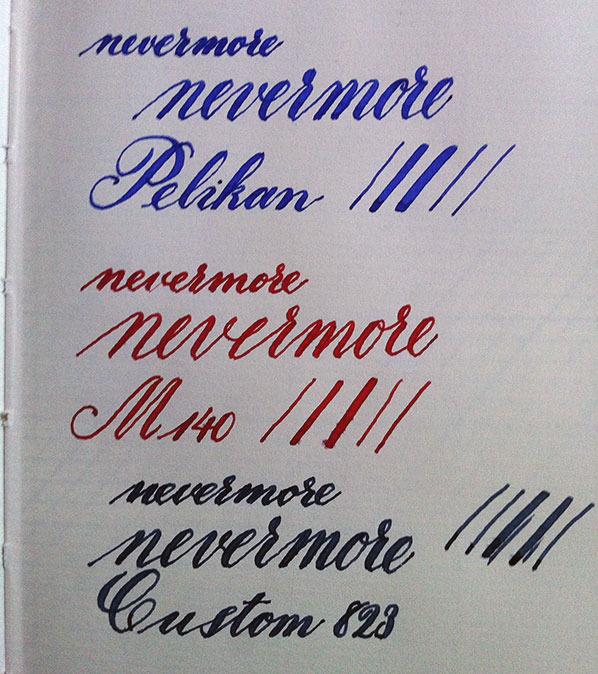 nevermore
nevermore
Pelikan
nevermore
nevermore
M140
nevermore
nevermore
Custom 823